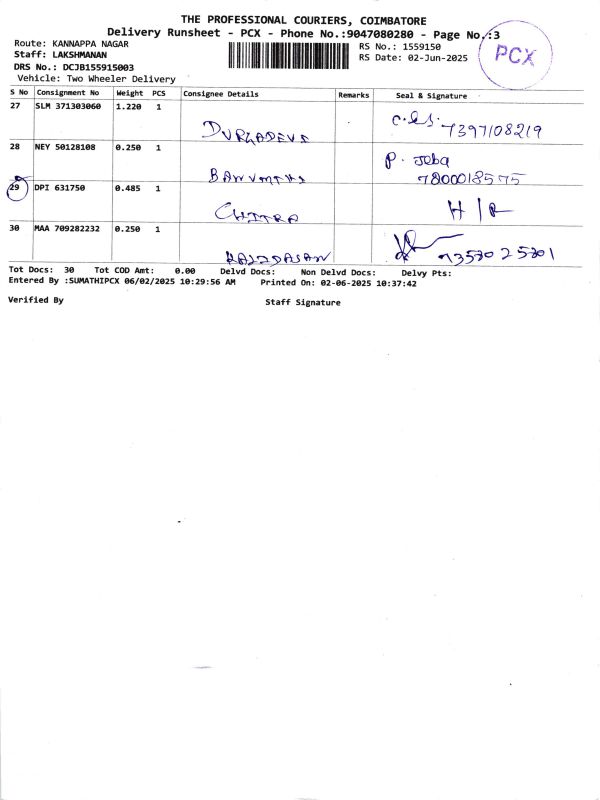 THE PROFESSIONAL COURIERS, COIMBATORE
Delivery Runsheet - PCX - Phone No.:9047080280 - Page No.:3
Route: KANNAPPA NAGAR
Staff: LAKSHMANAN
DRS No.: DCJB155915003
Vehicle: Two Wheeler Delivery
RS No.: 1559150
RS Date: 02-Jun-2025
PCX
S No Consignment No Weight PCS Consignee Details Remarks Seal & Signature
27 SLM 371303060 1.220 1
DURGADEVI 7397108219
28 NEY 50128108 0.250 1
P. Jeba
7800018575
29 DPI 631750 0.485 1
CHITRA H/R
30 MAA 709282232 0.250 1
KALIDASAN
Tot Docs: 30 Tot COD Amt: 0.00 Delvd Docs: Non Delvd Docs: Delvy Pts:
Entered By :SUMATHIPCX 06/02/2025 10:29:56 AM Printed On: 02-06-2025 10:37:42
Verified By Staff Signature